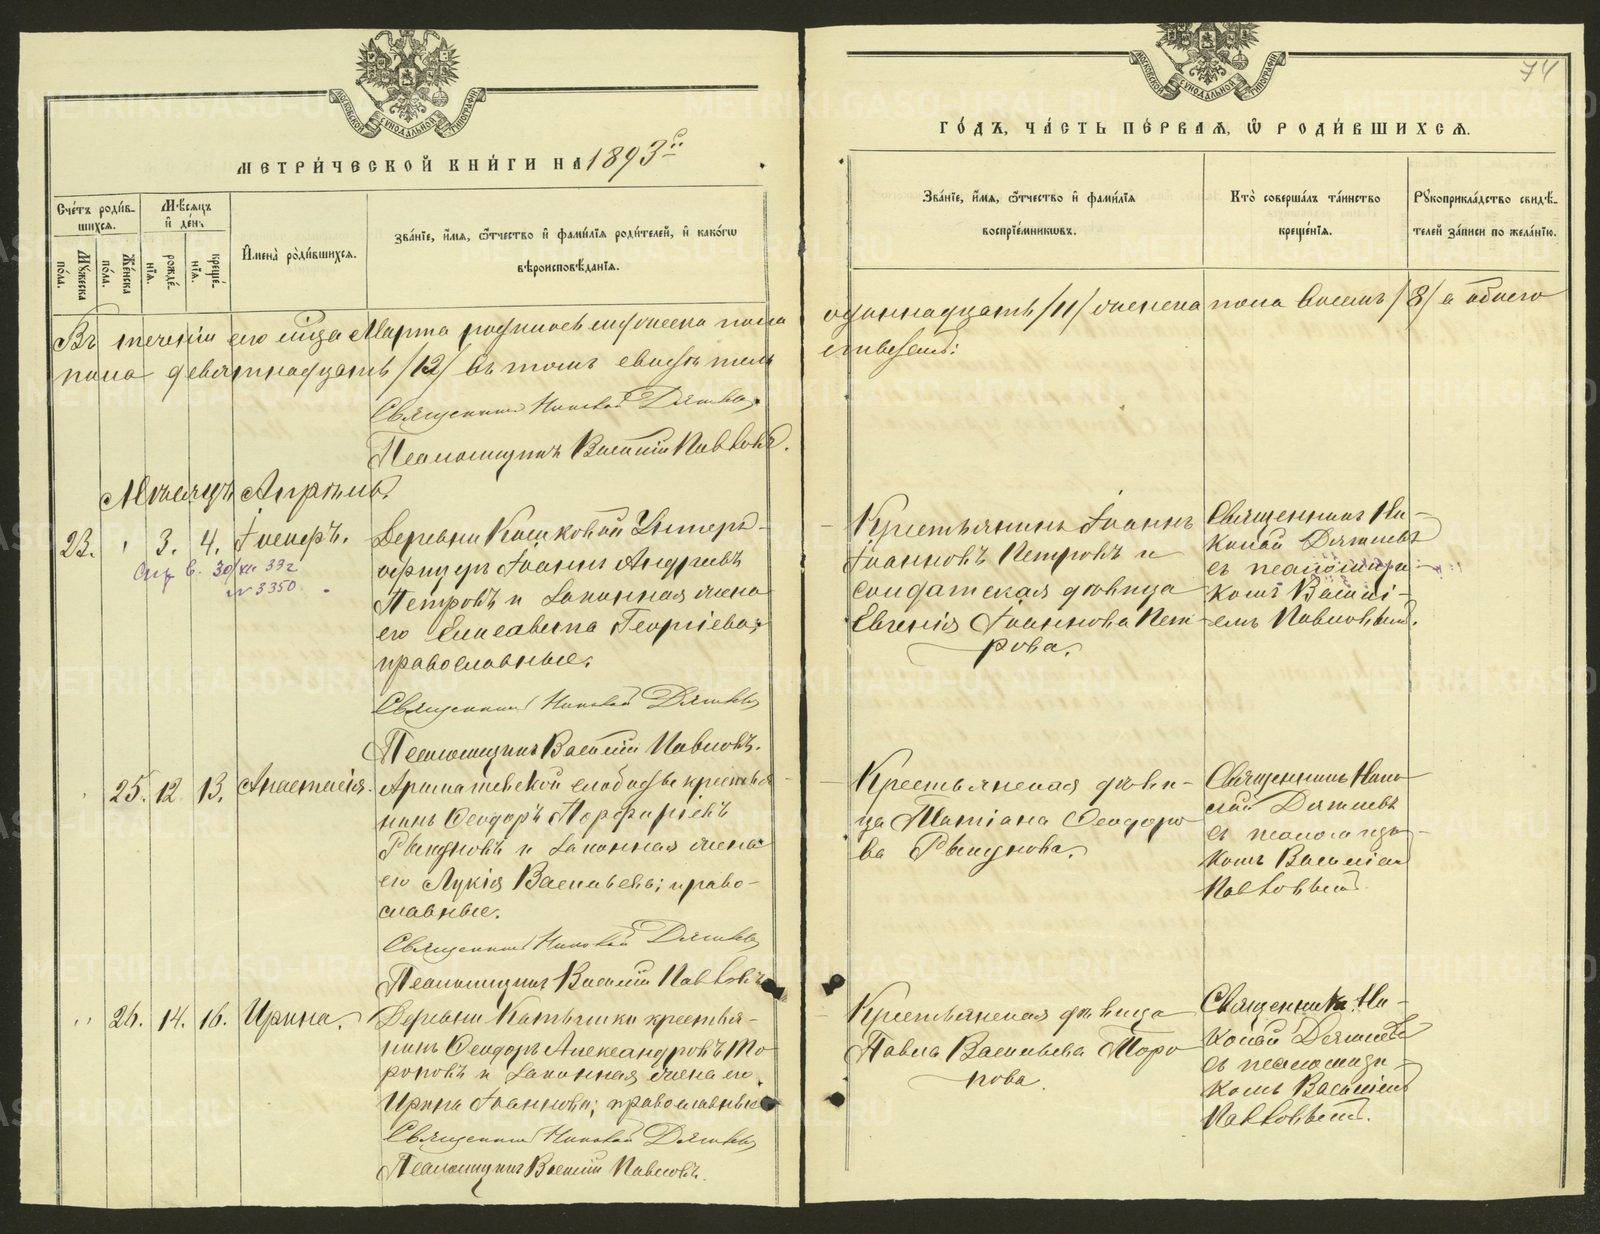 МОСКОВСКОЙ СѴНОДАЛЬНОЙ ТИПОГРАФІИ
МЕТРИ́ЧЕСКОЙ КНИ́ГИ НА 1893й
Сче́тъ роди́в-
шихся.
Мꙋ́жеска
по́ла.
Же́нска
по́ла.
Мѣ́сяцъ
и҆ де́нь
рожде́-
нїя.
креще́-
нїя.
И҆мена̀ роди́вшихся.
Зва́нїе, и҆́мя, ѻ҆́тчество и҆ фами́лїя роди́телей, и҆ како́гѡ
вѣроисповѣ́данїя.
Въ теченіи сего мѣсяца Марта родилось мужеска пола
пола девятнадцать /19/ въ томъ свидѣтель
Священникъ Николай
Псаломщикъ Василій Павловъ.
Мѣсяцъ Апрѣль.
23. 3. 4. Іосифъ. Деревни Унтеръ-
офицеръ Іоаннъ Андреевъ
Петровъ и законная жена
его Елисавета Георгіева;
православные.
30/XII 39г
№ 3350
Священникъ Николай
Псаломщикъ Василій Павловъ.
25. 12. 13. Анастасія. слободы крестья-
нинъ Ѳеодоръ Порфиріевъ
и законная жена
его Лукія Васильева; право-
славные.
Священникъ Николай
Псаломщикъ Василій Павловъ
26. 14. 16. Ирина. Деревни крестья-
нинъ Ѳеодоръ Александровъ То-
роповъ и законная жена его
Ирина Іоаннова; православные
Священникъ Николай
Псаломщикъ Василій Павловъ.
74
МОСКОВСКОЙ СѴНОДАЛЬНОЙ ТИПОГРАФІИ
ГО́ДЪ, ЧА́СТЬ ПЕ́РВАЯ, Ѽ РОДИ́ВШИХСЯ.
Зва́нїе, и҆́мя, ѻ҆́тчество и҆ фами́лїя
воспрїе́мникѡвъ.
Кто̀ соверша́лъ та́инство
креще́нїя.
Рꙋкоприкла́дство свидѣ́-
телей за́писи по жела́нїю.
одиннадцать /11/ женска пола восемь /8/ а обоего
Крестьянинъ Іоаннъ
Іоанновъ Петровъ и
солдатская дѣвица
Евгенія Іоаннова Пет-
рова.
Священникъ Ни-
колай
съ псаломщи-
комъ Василі-
емъ Павловымъ.
Крестьянская дѣви-
ца Татіана Ѳеодоро-
ва
Священникъ Нико-
лай
съ псаломщи-
комъ Василіемъ
Павловымъ.
Крестьянская дѣвица
Павла Васильева Торо-
пова.
Священникъ Ни-
колай
съ псаломщи-
комъ Василіемъ
Павловымъ.